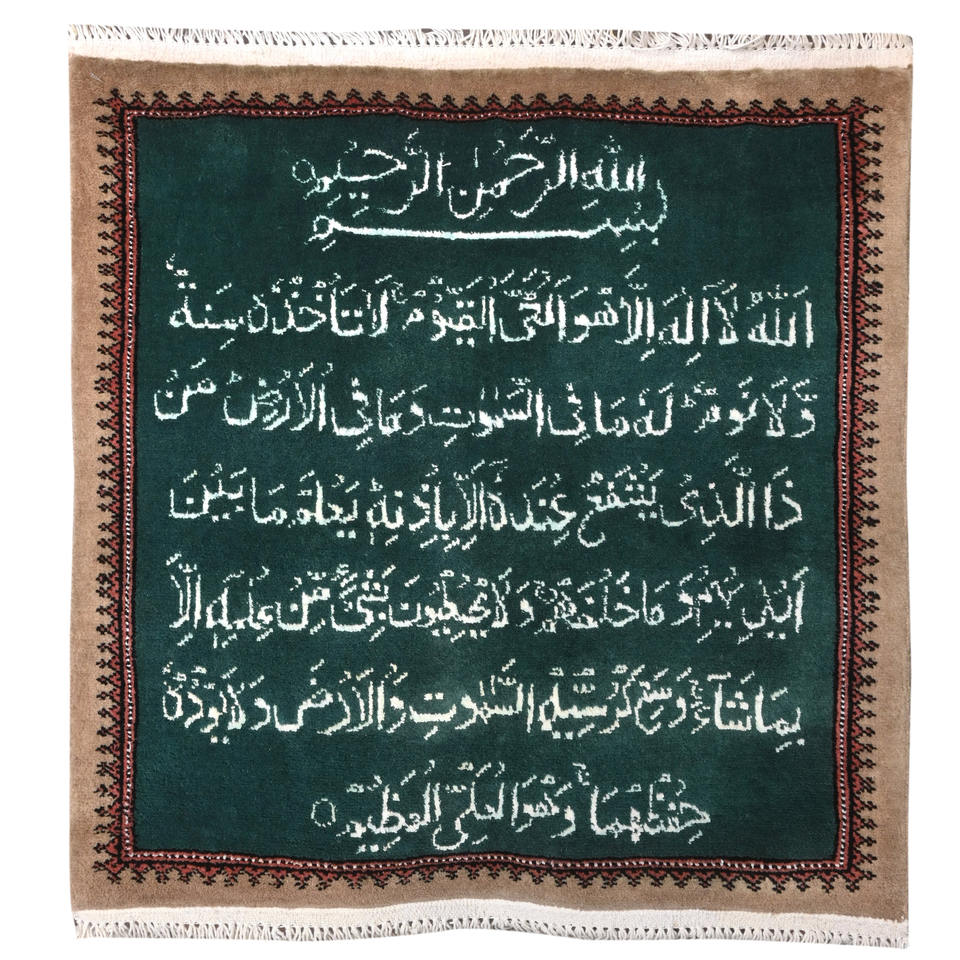 بِسْمِ اللهِ الرَّحْمٰنِ الرَّحِيْمِ
اَللهُ لَآ اِلٰهَ اِلَّا هُوَ الْحَىُّ الْقَيُّوْمُ لَا تَاْخُذُهٗ سِنَةٌ
وَّلَا نَوْمٌ لَهٗ مَا فِى السَّمٰوٰتِ وَمَا فِى الْاَرْضِ مَنْ
ذَا الَّذِىْ يَشْفَعُ عِنْدَهٗ اِلَّا بِاِذْنِهٖ يَعْلَمُ مَا بَيْنَ
اَيْدِيْهِمْ وَمَا خَلْفَهُمْ وَلَا يُحِيْطُوْنَ بِشَىْءٍ مِّنْ عِلْمِهٖ اِلَّا
بِمَا شَآءَ وَسِعَ كُرْسِيُّهُ السَّمٰوٰتِ وَالْاَرْضَ وَلَا يَؤُدُهٗ
حِفْظُهُمَا وَهُوَ الْعَلِىُّ الْعَظِيْمُ